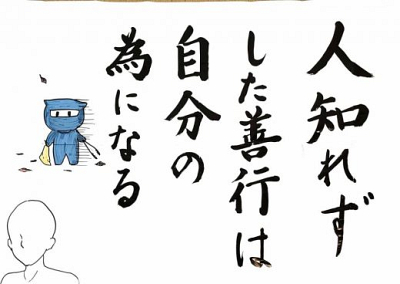 人知れず
した善行は
自分の
為になる